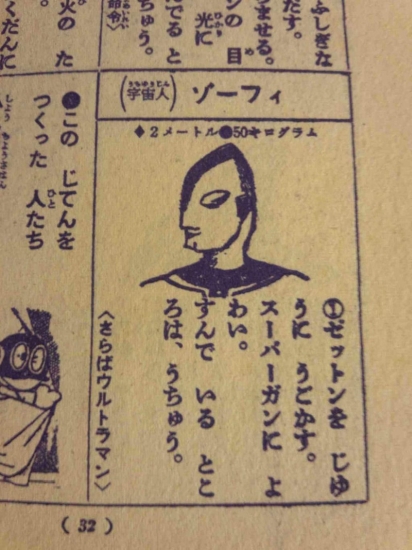 ふしぎな
だす。
ませる。
ンの 目
光に
てる と
ちゅう。
火の た
くだんに
(宇宙人) ゾーフィ
◆2メートル●50キログラム
❶ゼットンを じゆ
うに うごかす。
スーパーガンに よ
わい。
すんで いる とこ
ろは、うちゅう。
〈さらばウルトラマン〉
●この じてんを
つくった 人たち
(32)